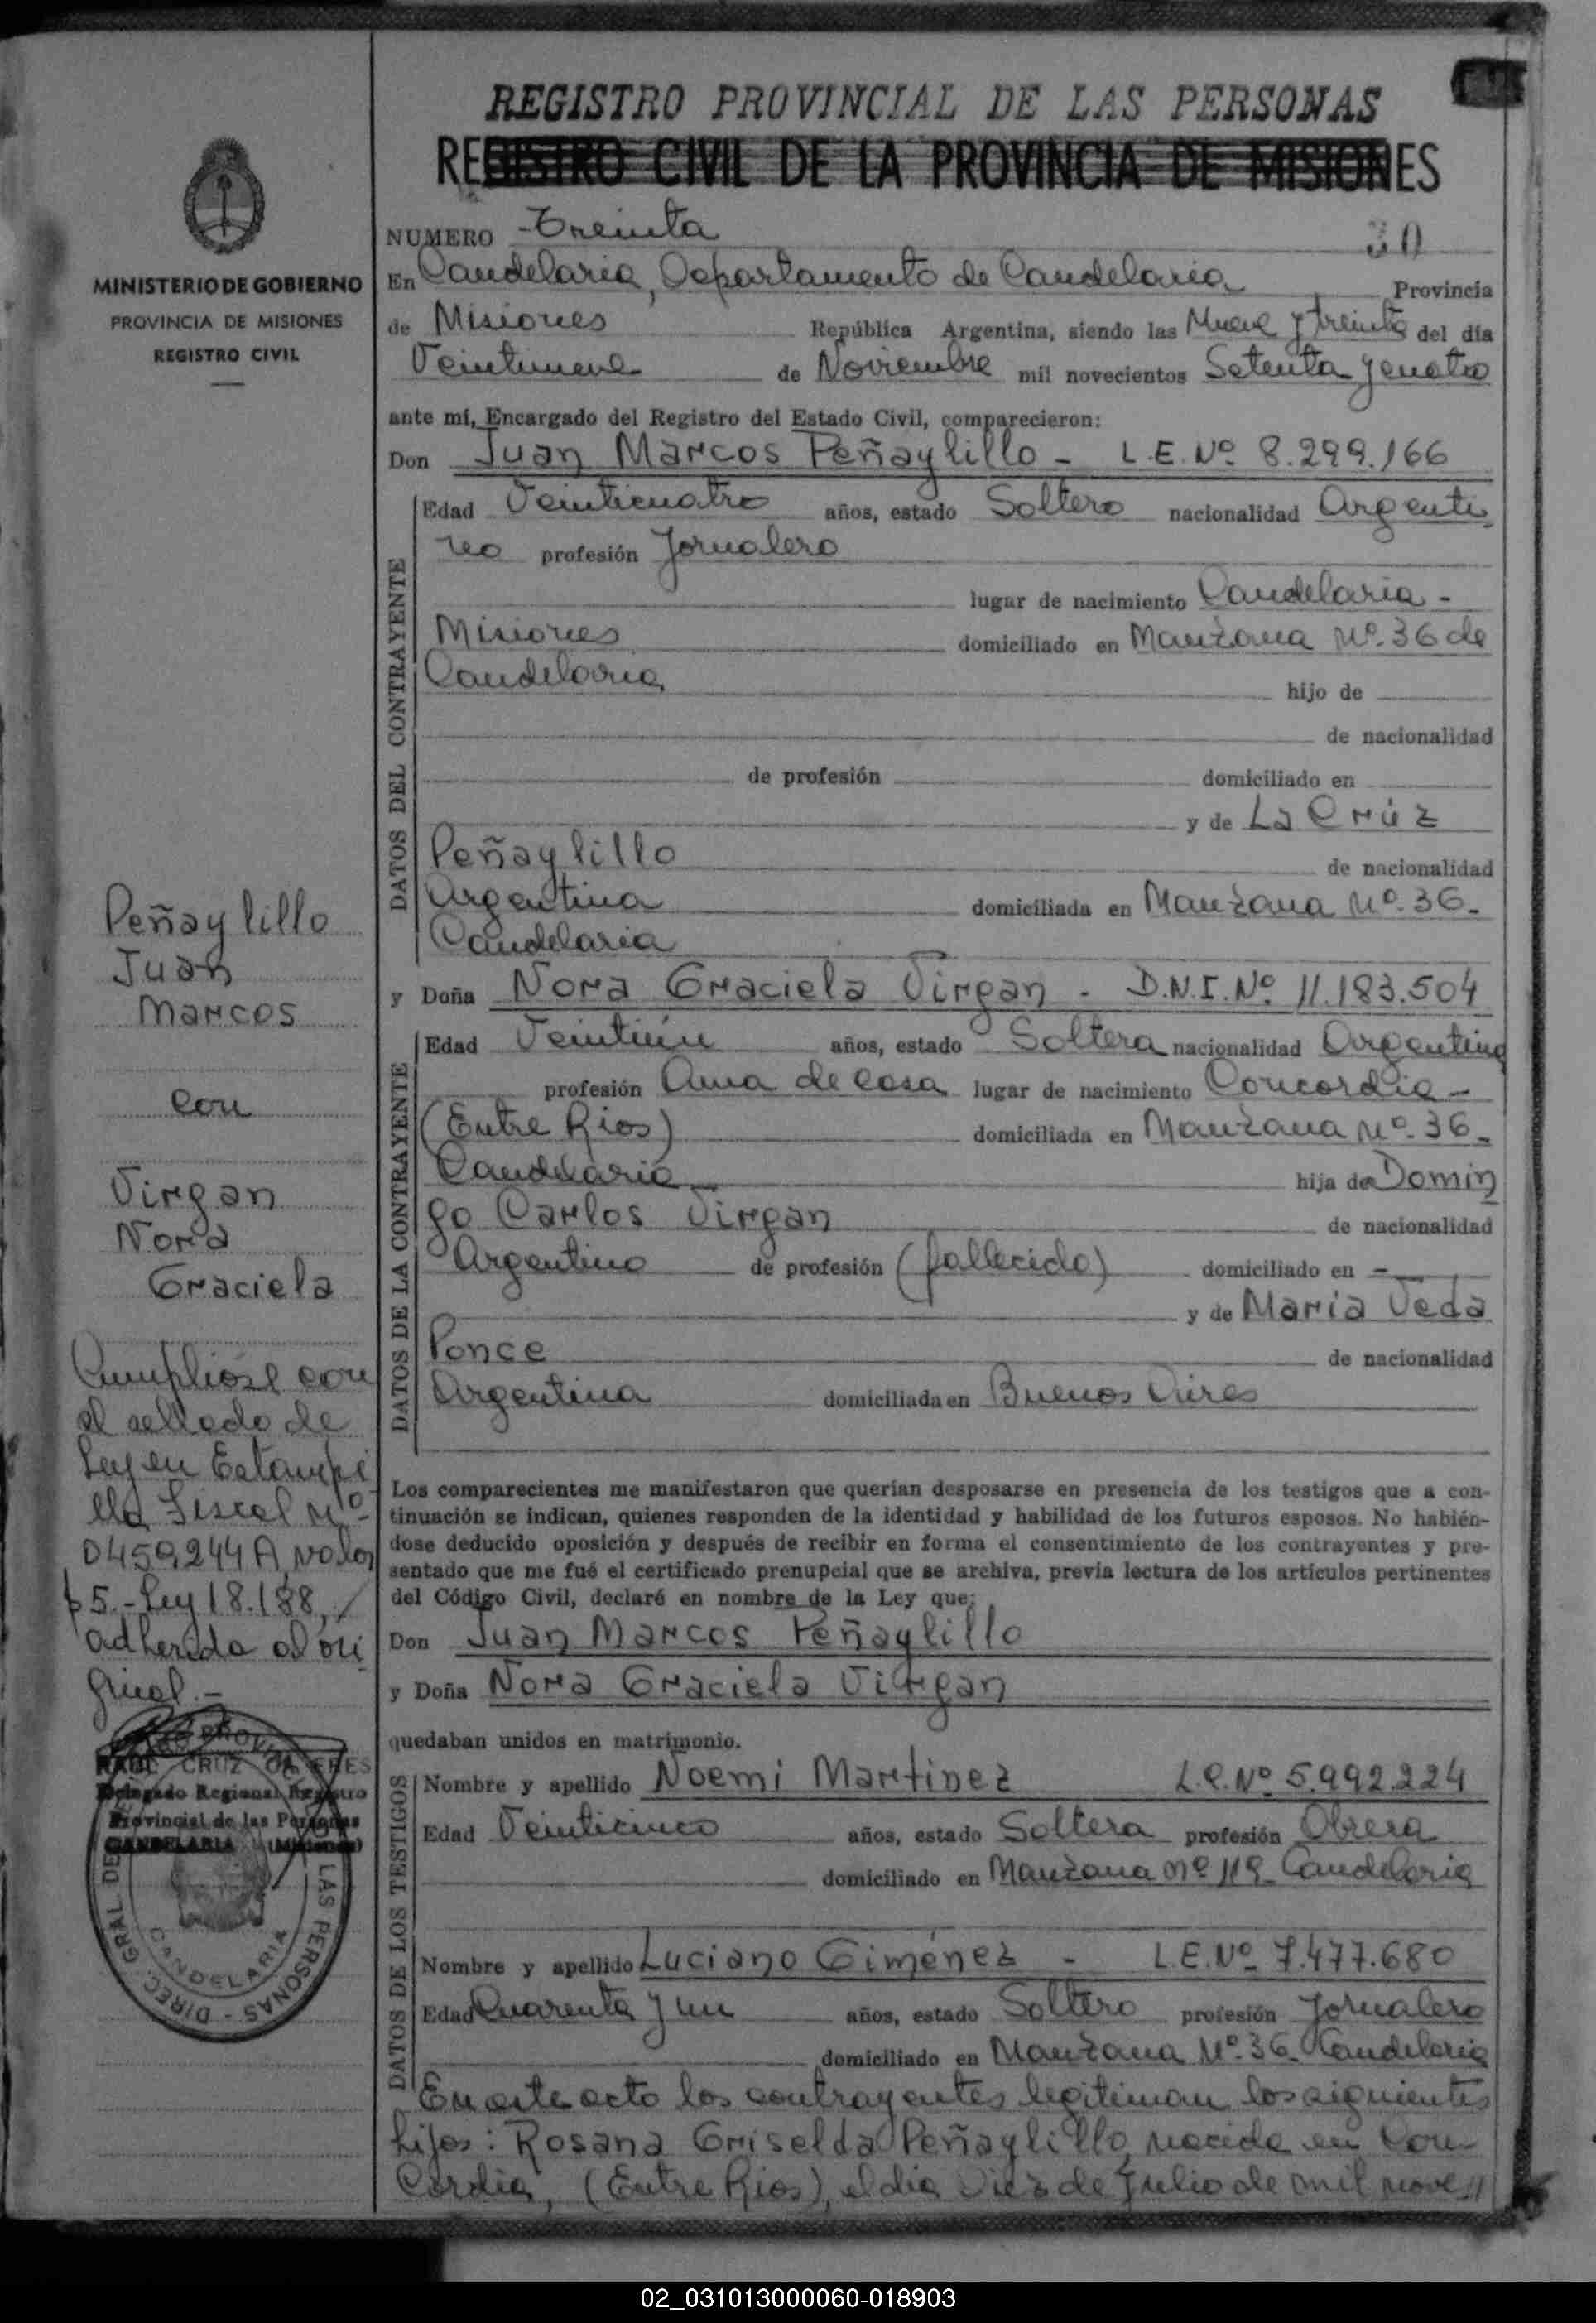 REGISTRO PROVINCIAL DE LAS PERSONAS
REGISTRO CIVIL DE LA PROVINCIA DE MISIONES
MINISTERIO DE GOBIERNO
PROVINCIA DE MISIONES
REGISTRO CIVIL
NUMERO -Treinta 30
En Candelaria, Departamento de Candelaria Provincia
de Misiones República Argentina, siendo las Nueve y treinta del día
Veintinueve de Noviembre mil novecientos Setenta y cuatro
ante mí, Encargado del Registro del Estado Civil, comparecieron:
Don Juan Marcos Peñaylillo - L.E. Nº 8.299.166
DATOS DEL CONTRAYENTE
Edad Veinticuatro años, estado Soltero nacionalidad Argenti
no profesión Jornalero
lugar de nacimiento Candelaria -
Misiones domiciliado en Manzana Nº. 36 de
Candelaria hijo de
de nacionalidad
de profesión domiciliado en
y de La Crúz
Peñaylillo de nacionalidad
Argentina domiciliada en Manzana Nº. 36-
Candelaria
y Doña Nora Graciela Virgan - D.N.I. Nº 11.183.504
DATOS DE LA CONTRAYENTE
Edad Veintiún años, estado Soltera nacionalidad Argentina
profesión Ama de casa lugar de nacimiento Concordia -
(Entre Rios) domiciliada en Manzana Nº. 36-
Candelaria hija de Domin
go Carlos Virgan de nacionalidad
Argentino de profesión (fallecido) domiciliado en -
y de María Veda
Ponce de nacionalidad
Argentina domiciliada en Buenos Aires
Los comparecientes me manifestaron que querían desposarse en presencia de los testigos que a con-
tinuación se indican, quienes responden de la identidad y habilidad de los futuros esposos. No habién-
dose deducido oposición y después de recibir en forma el consentimiento de los contrayentes y pre-
sentado que me fué el certificado prenupcial que se archiva, previa lectura de los artículos pertinentes
del Código Civil, declaré en nombre de la Ley que:
Don Juan Marcos Peñaylillo
y Doña Nora Graciela Virgan
quedaban unidos en matrimonio.
DATOS DE LOS TESTIGOS
Nombre y apellido Noemi Martinez L.C. Nº 5.992.224
Edad Veinticinco años, estado Soltera profesión Obrera
domiciliado en Manzana nº 119- Candelaria
Nombre y apellido Luciano Giménez - L.E. Nº 7.477.680
Edad Cuarenta y un años, estado Soltero profesión Jornalero
domiciliado en Manzana Nº. 36- Candelaria
En este acto los contrayentes legitiman los siguientes
hijos: Rosana Griselda Peñaylillo, nacida en Con-
cordia, (Entre Rios), el dia Diez de Julio de mil nove//
Peñaylillo
Juan
Marcos
con
Virgan
Nora
Graciela
Cumplióse con
el sellado de
Ley en Estampi
lla Fiscal Nº
0459244 A, valor
$5.- Ley 18.188,
adherida al ori
ginal.-
RAUL CRUZ
Delegado Regional Registro
Provincial de las Personas
CANDELARIA (Misiones)
DIREC. GRAL DEL PROV. LAS PERSONAS
CANDELARIA
02_031013000060-018903